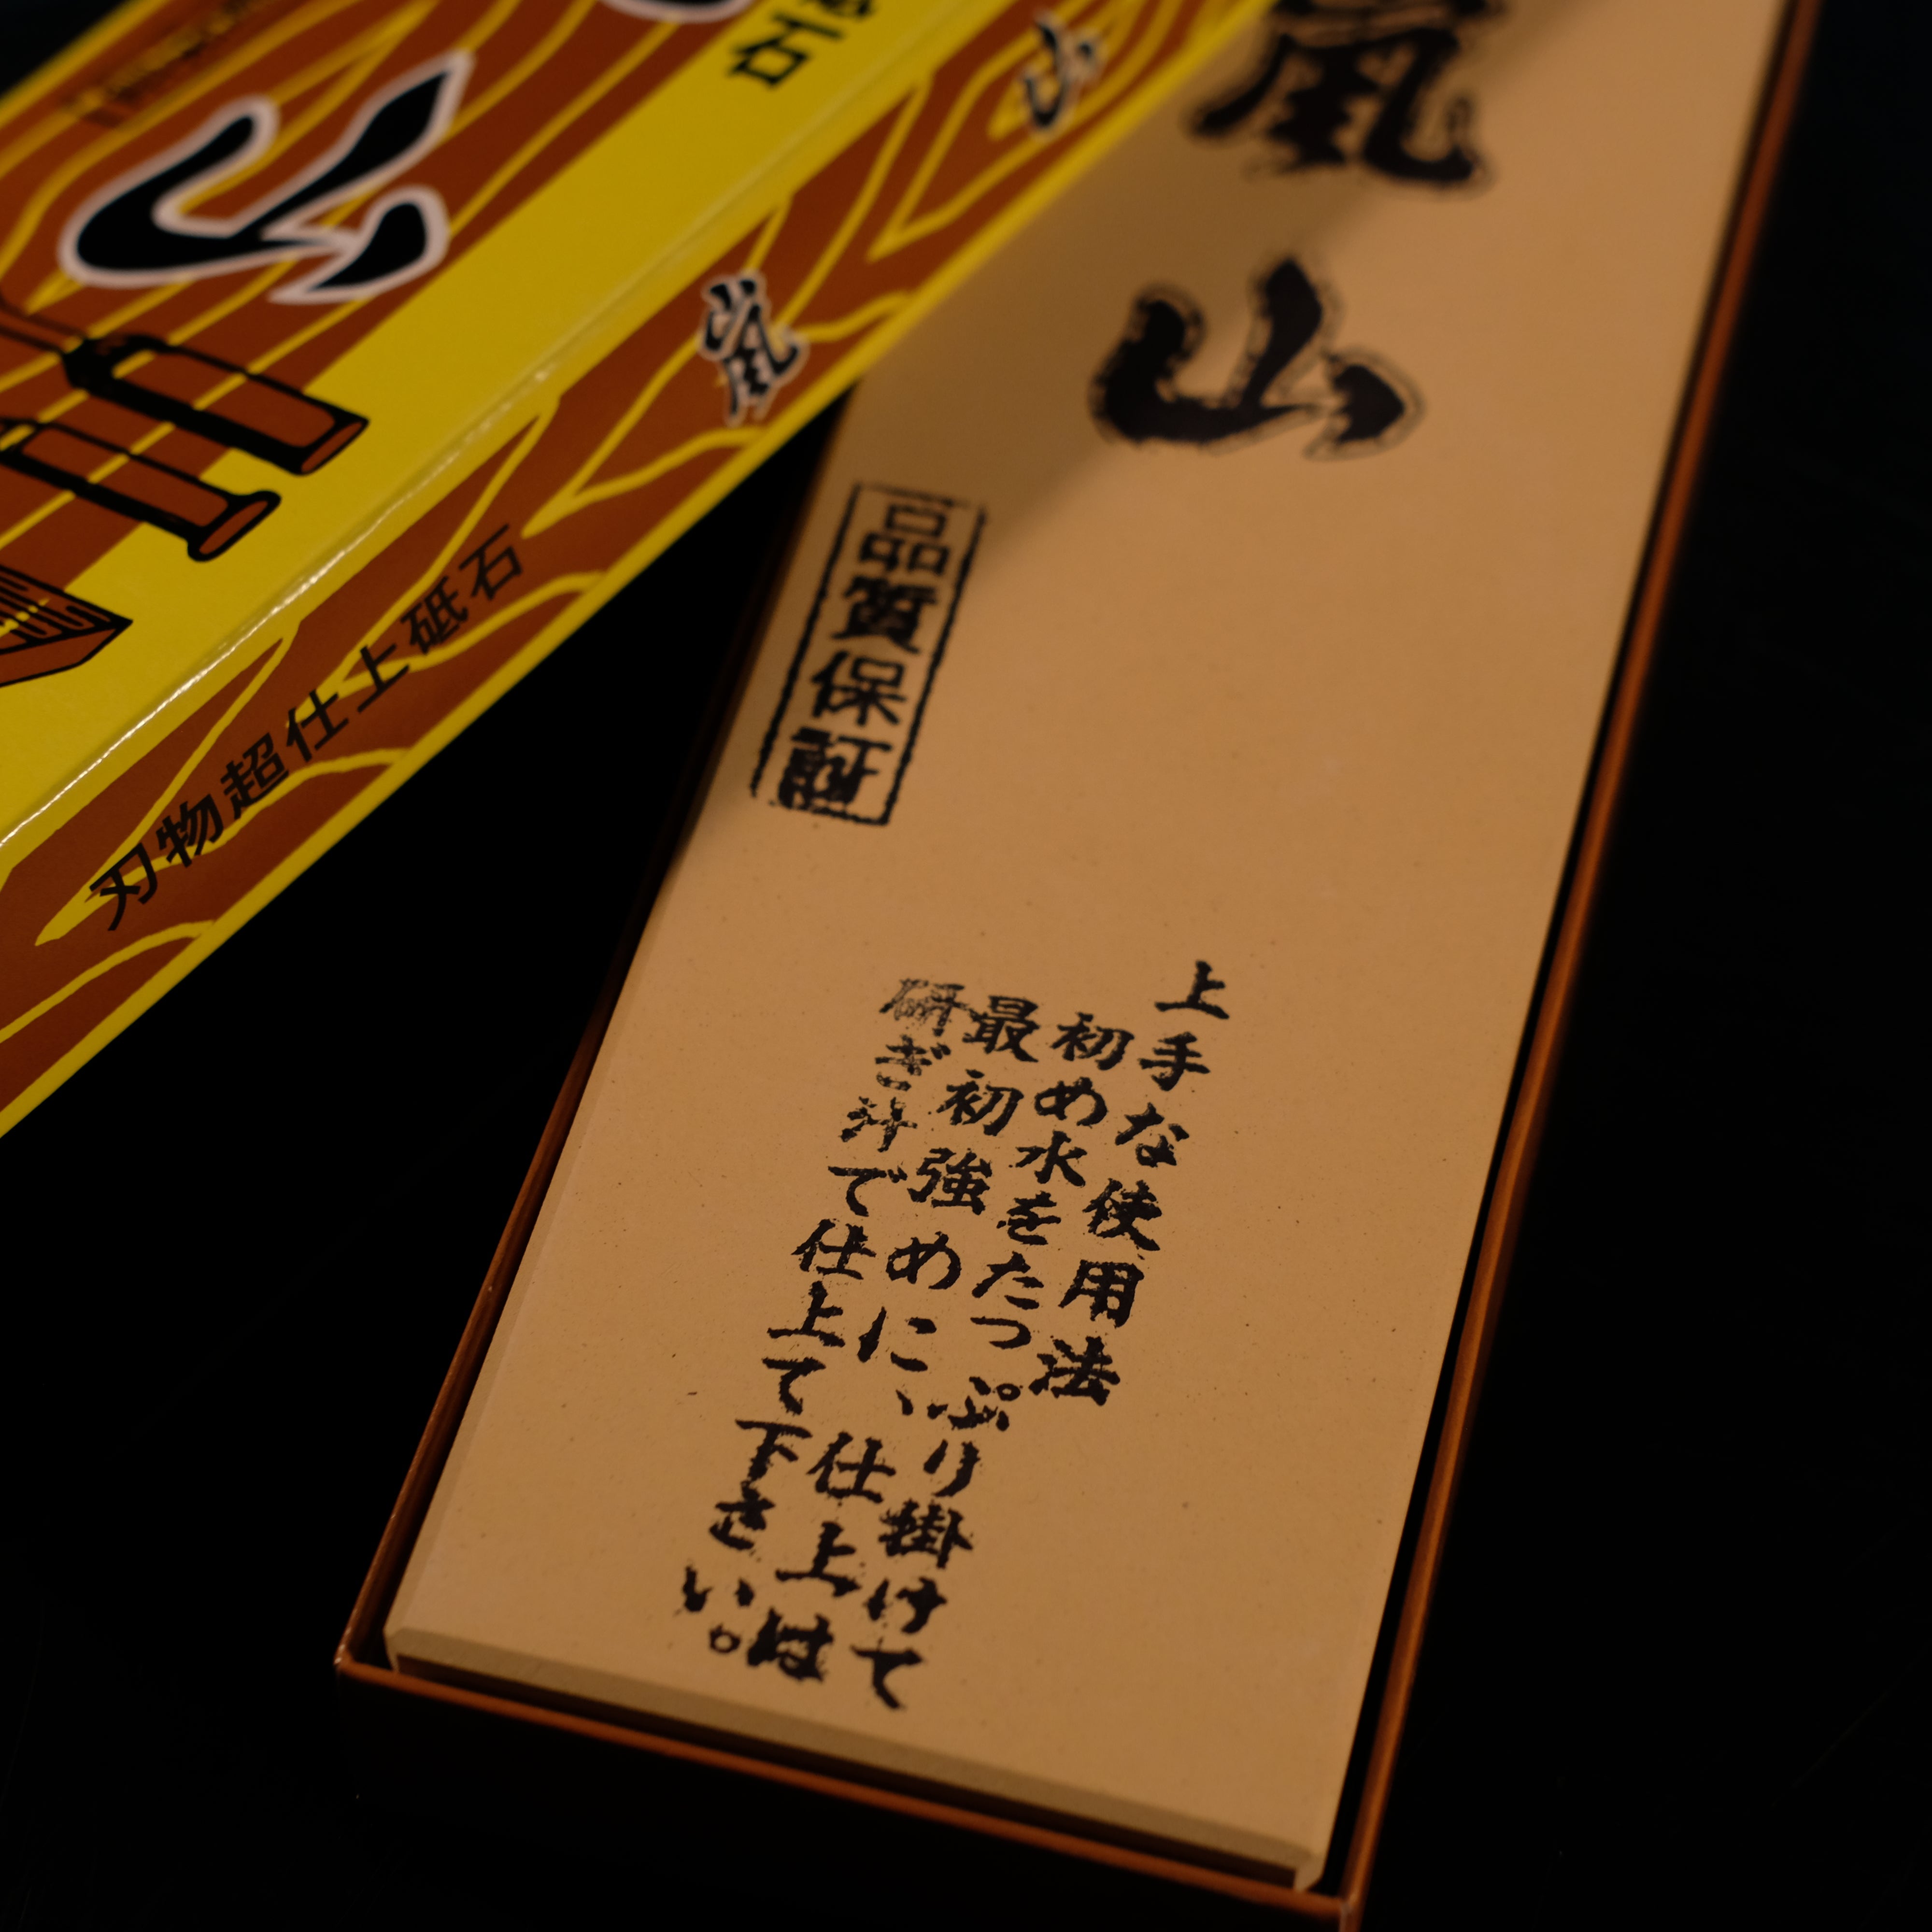 嵐山
品質保証
上手な使用法
初め水をたっぷり掛けて
最初強めに、仕上は
研ぎ汁で仕上て下さい。
砥石
山
嵐
山
刃物超仕上砥石